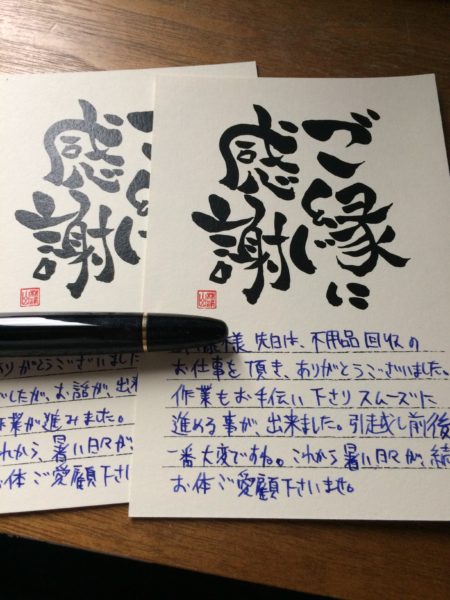 ご縁に
感謝。
りがとうございました
したが、お話が、出来
作業が進みました。
れから、暑い日々が
お体ご愛顧下さい
ご縁に
感謝。
様 先日は、不用品回収の
お仕事を頂き、ありがとうございました。
作業もお手伝い下さりスムーズに
進める事が、出来ました。引越し前後
一番大変ですね。これから暑い日々が、続
お体ご愛顧下さいませ。